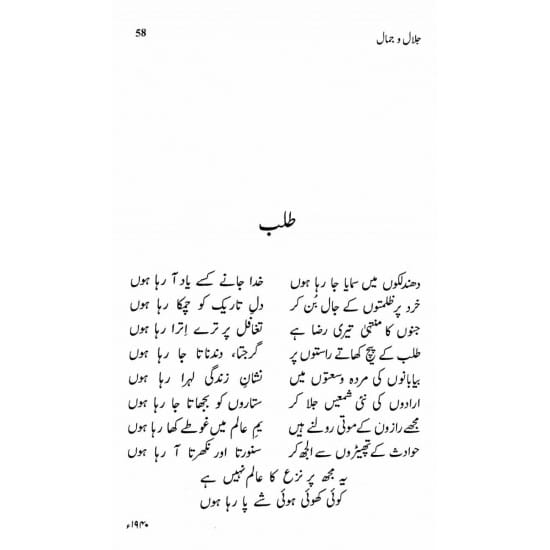 جلال و جمال 58
طلب
دھندلکوں میں سمایا جا رہا ہوں خدا جانے کسے یاد آ رہا ہوں
خرد پر ظلمتوں کے جال بُن کر دلِ تاریک کو چمکا رہا ہوں
جنوں کا منتہیٰ تیری رضا ہے تغافل پر ترے اِترا رہا ہوں
طلب کے پیچ کھاتے راستوں پر گرجتا، دندناتا جا رہا ہوں
بیابانوں کی مردہ وسعتوں میں نشانِ زندگی لہرا رہا ہوں
ارادوں کی نئی شمعیں جلا کر ستاروں کو بجھاتا جا رہا ہوں
مجھے رازوں کے موتی رولنے ہیں یمِ عالم میں غوطے کھا رہا ہوں
حوادث کے تھپیڑوں سے الجھ کر سنورتا اور نکھرتا آ رہا ہوں
یہ مجھ پر نزع کا عالم نہیں ہے
کوئی کھوئی ہوئی شے پا رہا ہوں
۱۹۴۰ء